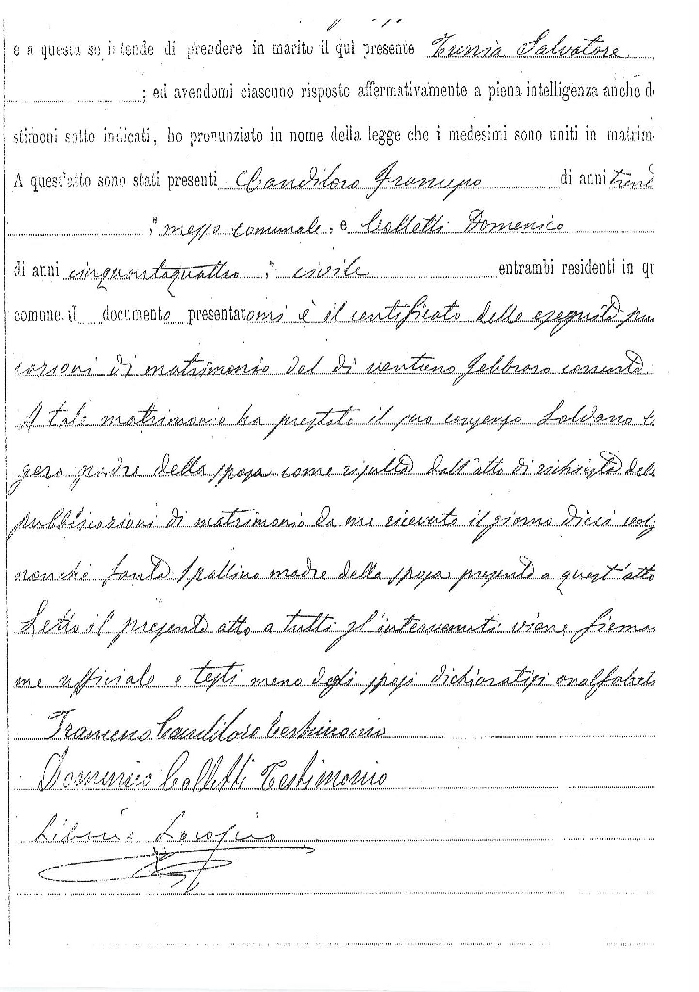 e a questa se intende di prendere in marito il qui presente Tunia Salvatore
; ed avendomi ciascuno risposto affermativamente a piena intelligenza anche d
stimoni sotto indicati, ho pronunziato in nome della legge che i medesimi sono uniti in matrim
A quest'atto sono stati presenti Candiloro Francesco di anni trent
, messo comunale, e Colletti Domenico
di anni cinquantaquattro, civile entrambi residenti in qu
comune. I documento presentatomi è il certificato delle eseguite pu
cazioni di matrimonio del dì ventuno febbraro corrente
A tale matrimonio ha prestato il suo consenso Soldano
gero padre della sposa come risulta dall'atto di richiesta delle
pubblicazioni di matrimonio da me ricevuto il giorno dieci
nonché madre della sposa presente a quest'atto
Letto il presente atto a tutti gl'intervenuti viene firma
me ufficiale e testi meno degli sposi dichiaratisi analfabeti
Francesco Candiloro Testimonio
Domenico Colletti Testimonio